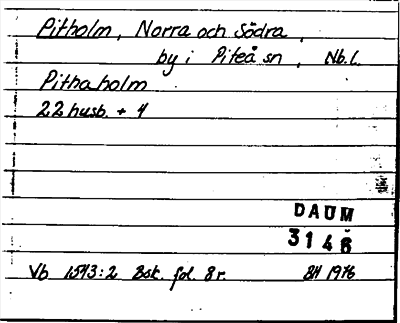 Pitholm, Norra och Södra,
by i Piteå sn, Nb.l.
Pithaholm
22 husb. + 4
DAUM
3146
Vb 1543:2 Bsk. fol. 8r. BH 1976